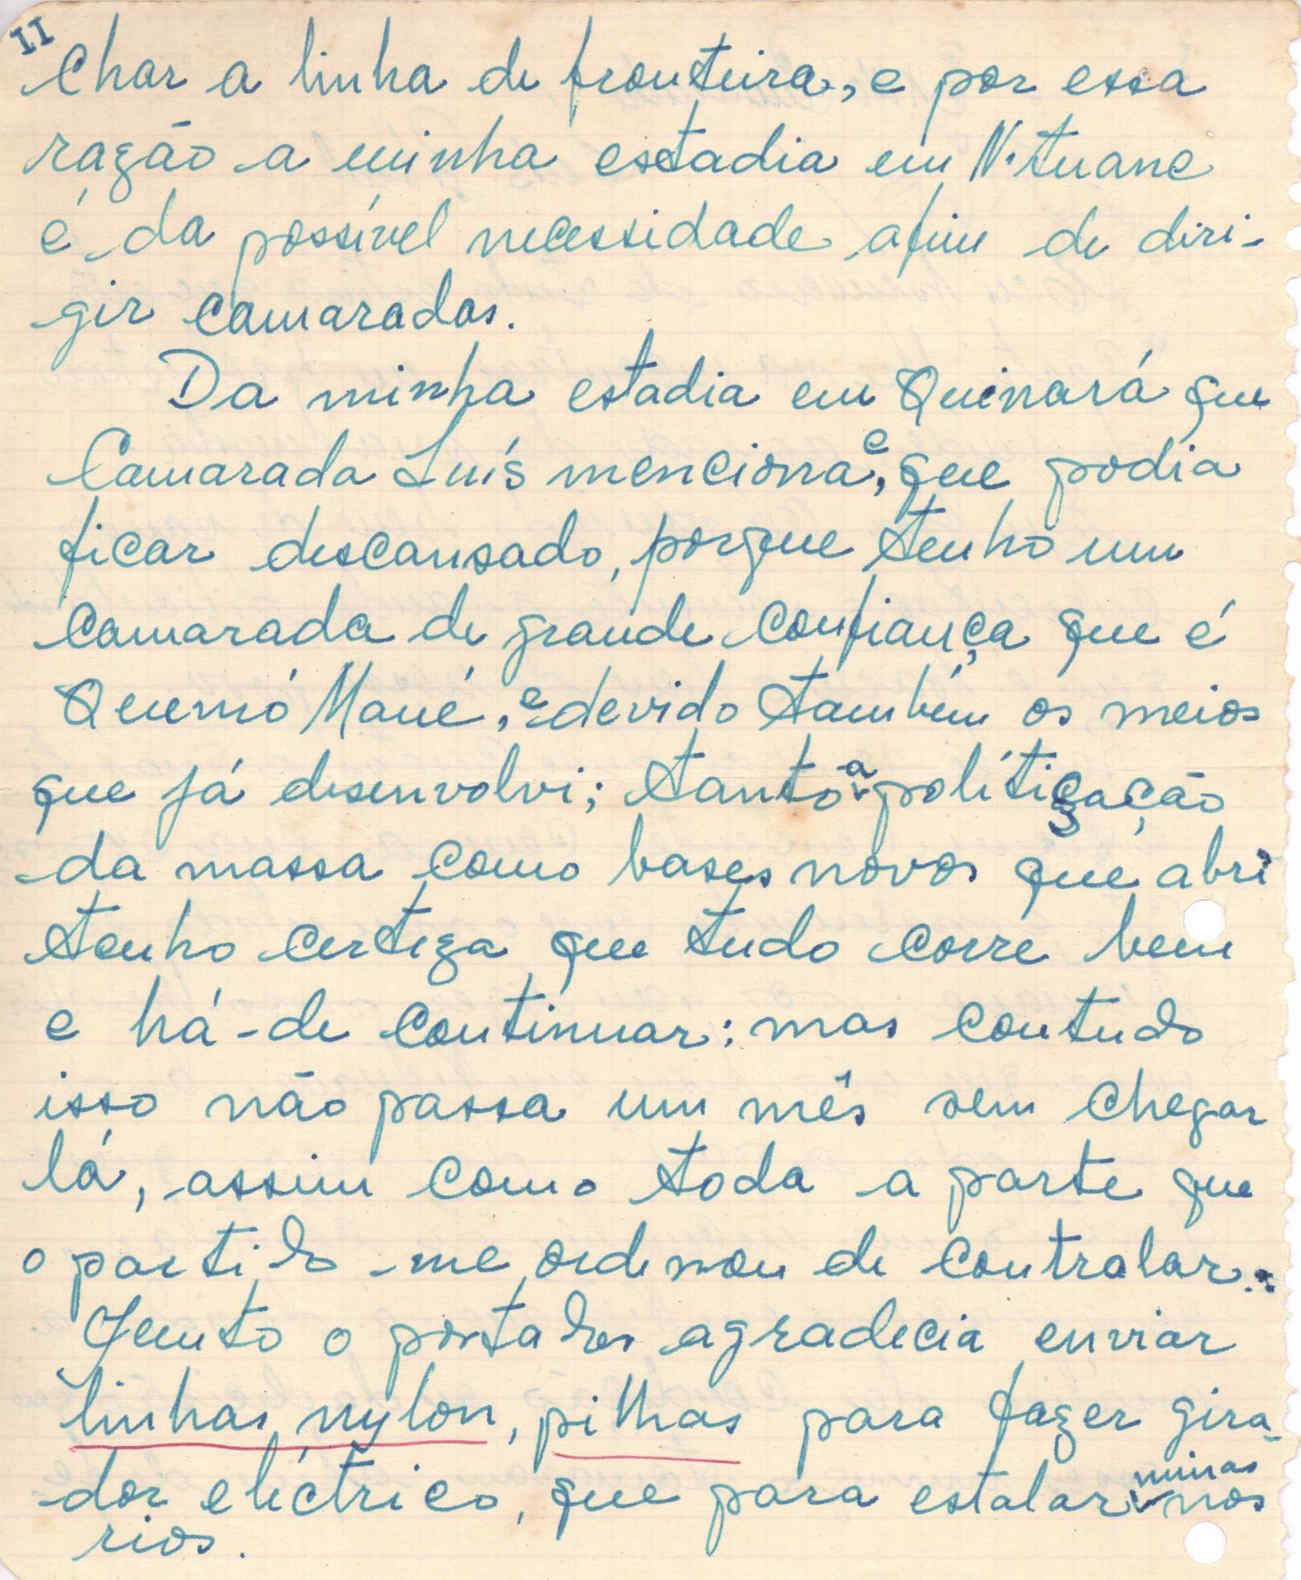 II
char a linha de fronteira, e por essa
razão a minha estadia em N'tuane
é da possível necessidade afim de diri-
gir camaradas.
Da minha estadia em Quinará que
Camarada Luís menciona, e que podia
ficar descansado, porque tenho um
camarada de grande confiança que é
Quemó Mané, e devido também os meios
que já desenvolvi; tanto a polítização
da massa como bases novos que abri
tenho certeza que tudo corre bem
e há-de continuar: mas contudo
isso não passa um mês sem chegar
lá, assim como toda a parte que
o partido me ordenou de contralar.
Junto o portador agradecia enviar
linhas nylon, pilhas para fazer gira-
dor eléctrico, que para estalar minas nos
rios.